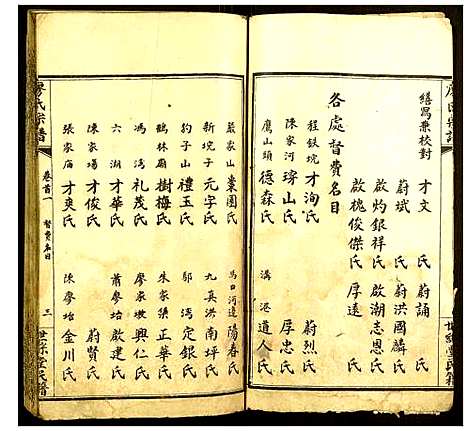 繕寫兼校對
才文氏 蔚誦氏
蔚斌氏 蔚洪國麟氏
啟灼銀祥氏 啟潮志恩氏
啟槐俊傑氏 厚遠氏
各處督費名目
程鉄坑 才洵氏 蔚烈氏
陳家河 琦山氏 厚忠氏
鷹山頭 德森氏 溝港 道人氏
嚴家山 業園氏 馬口河邊 陽春氏
新坑子 元字氏 九真洪 南坪氏
豹子山 禮玉氏 鄒湾 定銀氏
鶴林廟 樹梅氏 朱家集 正華氏
馮湾 礼茂氏 廖家坡 興仁氏
六湖 才華氏 蕭廖垱 啟建氏
陳家場 才俊氏 蔚賢氏
張家庙 才爽氏 陳廖垱 金川氏
廖氏宗譜 卷首一 督費名目 三